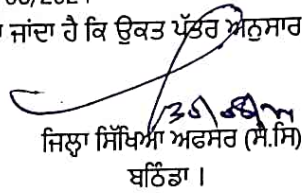 /2024
ਜਾਂਦਾ ਹੈ ਕਿ ਉਕਤ ਪੱਤਰ ਅਨੁਸਾਰ
ਜਿਲ੍ਹਾ ਸਿੱਖਿਆ ਅਫਸਰ (ਸੈ.ਸਿ)
ਬਠਿੰਡਾ ।